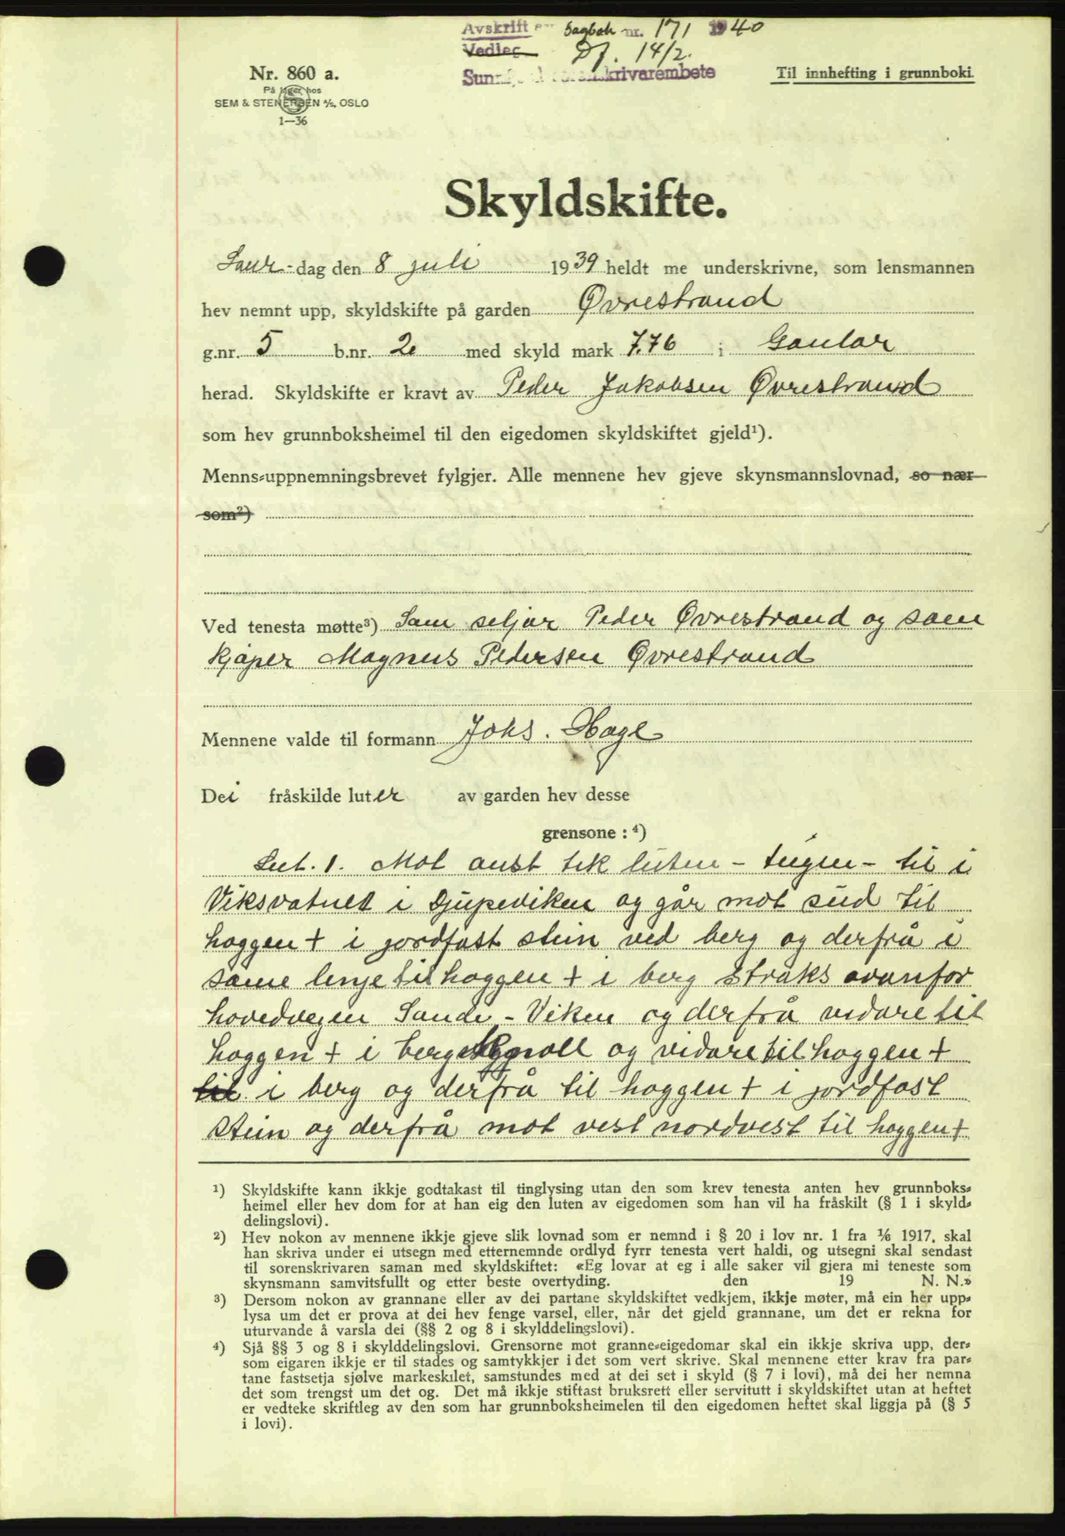 Avskrift av dagbok nr. 171 1940
Vedleg Df. 14/2.
Sunnfjord sorenskrivarembete
Nr. 860 a.
Til innhefting i grunnboki.
På lager hos
SEM & STENERSEN A/S, OSLO
1—36
Skyldskifte.
Laur-dag den 8 juli 1939 heldt me underskrivne, som lensmannen
hev nemnt upp, skyldskifte på garden Øvrestrand
g.nr. 5 b.nr. 2 med skyld mark 7.76 i Gaular
herad. Skyldskifte er kravt av Peder Jakobsen Øvrestrand
som hev grunnboksheimel til den eigedomen skyldskiftet gjeld¹).
Menns-uppnemningsbrevet fylgjer. Alle mennene hev gjeve skynsmannslovnad, so nær
som²)
Ved tenesta møtte³) Som seljar Peder Øvrestrand og som
kjøper Magnus Pedersen Øvrestrand
Mennene valde til formann Johs. Hage
Dei fråskilde luter av garden hev desse
grensone : ⁴)
Lut. 1. Mot aust tek luten - teigen - til i
Viksvatnet i Djupeviken og går mot süd til
hoggen + i jordfast stein ved berg og derfrå i
same linje til hoggen + i berg straks ovanfor
hovedvegen Sande - Viken og derfrå vidare til
hoggen + i bergknoll og vidare til hoggen +
til i berg og derfrå til hoggen + i jordfast
stein og derfrå mot vest nordvest til hoggen +
¹) Skyldskifte kann ikkje godtakast til tinglysing utan den som krev tenesta anten hev grunnboks-
heimel eller hev dom for at han eig den luten av eigedomen som han vil ha fråskilt (§ 1 i skyld-
delingslovi).
²) Hev nokon av mennene ikkje gjeve slik lovnad som er nemnd i § 20 i lov nr. 1 fra 1/6 1917, skal
han skriva under ei utsegn med etternemnde ordlyd fyrr tenesta vert haldi, og utsegni skal sendast
til sorenskrivaren saman med skyldskiftet: «Eg lovar at eg i alle saker vil gjera mi teneste som
skynsmann samvitsfullt og etter beste overtyding. den 19 N. N.»
³) Dersom nokon av grannane eller av dei partane skyldskiftet vedkjem, ikkje møter, må ein her upp-
lysa um det er prova at dei hev fenge varsel, eller, når det gjeld grannane, um det er rekna for
uturvande å varsla dei (§§ 2 og 8 i skylddelingslovi).
⁴) Sjå §§ 3 og 8 i skylddelingslovi. Grensorne mot granne-eigedomar skal ein ikkje skriva upp, der-
som eigaren ikkje er til stades og samtykkjer i det som vert skrive. Skal mennene etter krav fra par-
tane fastsetja sjølve markeskilet, samstundes med at dei set i skyld (§ 7 i lovi), må dei her nemna
det som trengst um det og. Det må ikkje stiftast bruksrett eller servitutt i skyldskiftet utan at heftet
er vedteke skriftleg av den som har grunnboksheimelen til den eigedomen heftet skal liggja på (§ 5
i lovi).